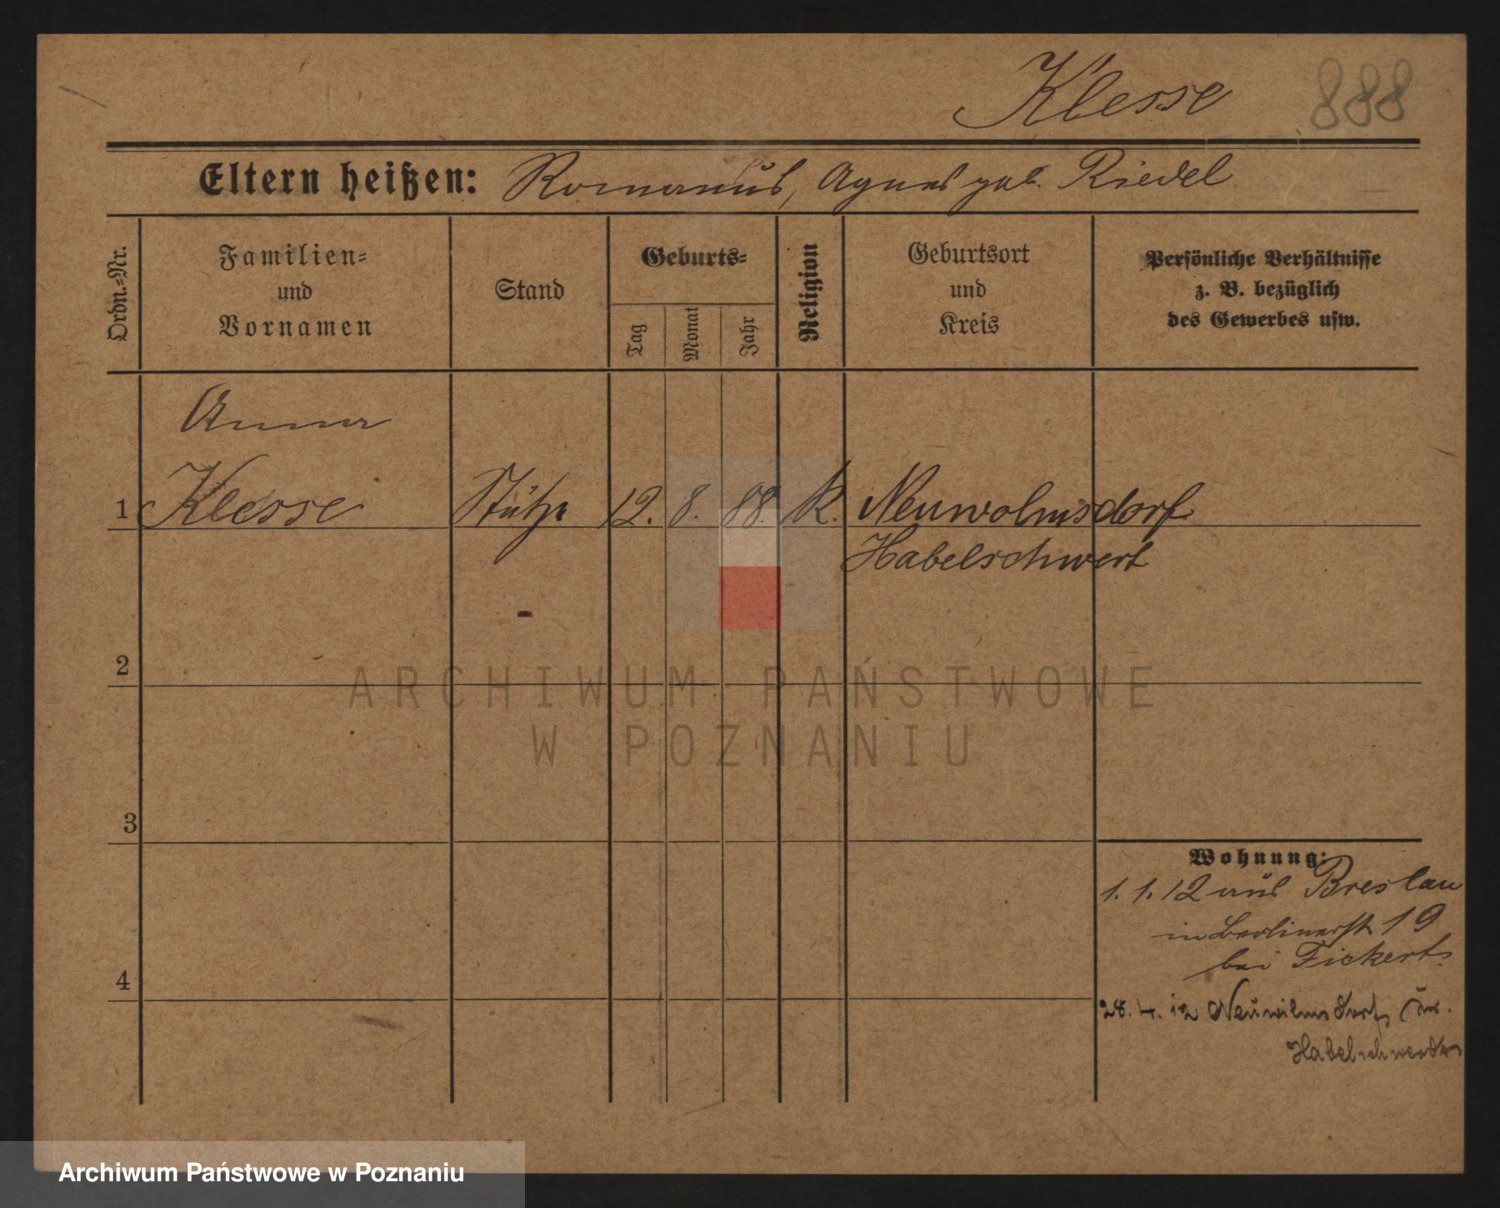 Klesse 888
Eltern heißen: Romanus, Agnes geb. Riedel
Ordn.-Nr.
Familien-
und
Vornamen
Stand
Geburts-
Tag
Monat
Jahr
Religion
Geburtsort
und
Kreis
Persönliche Verhältnisse
z. B. bezüglich
des Gewerbes usw.
Anna
1 Klesse Stütze 12. 8. 88. k. Neuwolmsdorf
Habelschwert
2
ARCHIWUM PAŃSTWOWE
W POZNANIU
3
Wohnung:
1. 1. 12 aus Breslau
in Berlinerstr 19
bei Fickert
4
28. 4. 12 Neuwilmsdorf, Kr.
Habelschwerdt
Archiwum Państwowe w Poznaniu